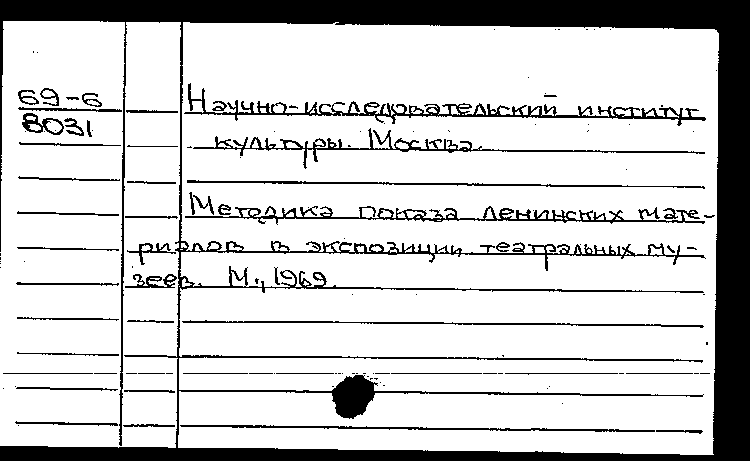 69-6
8031
Научно-исследовательский институт
культуры. Москва.
Методика показа ленинских мате-
риалов в экспозиции театральных му-
зеев. М., 1969.